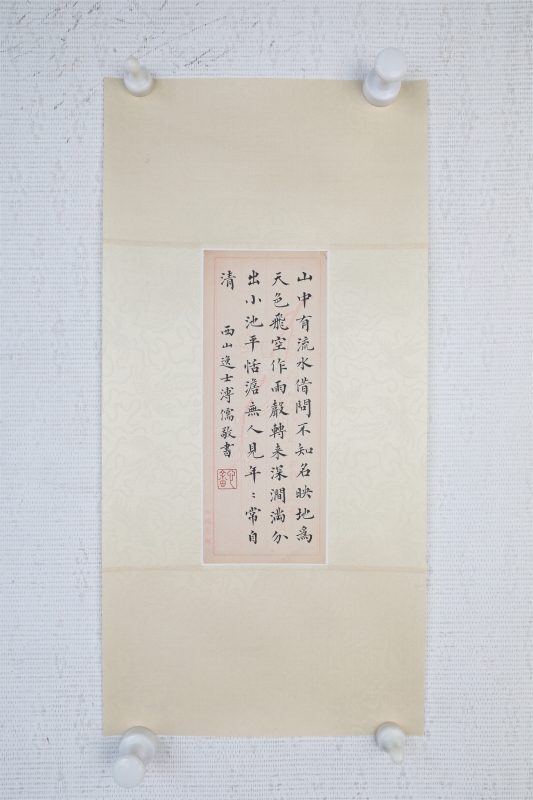 山中有流水借問不知名映地為
天色飛空作雨聲轉來深澗滿分
出小池平恬澹無人見年〻常自
清
西山逸士溥儒敬書